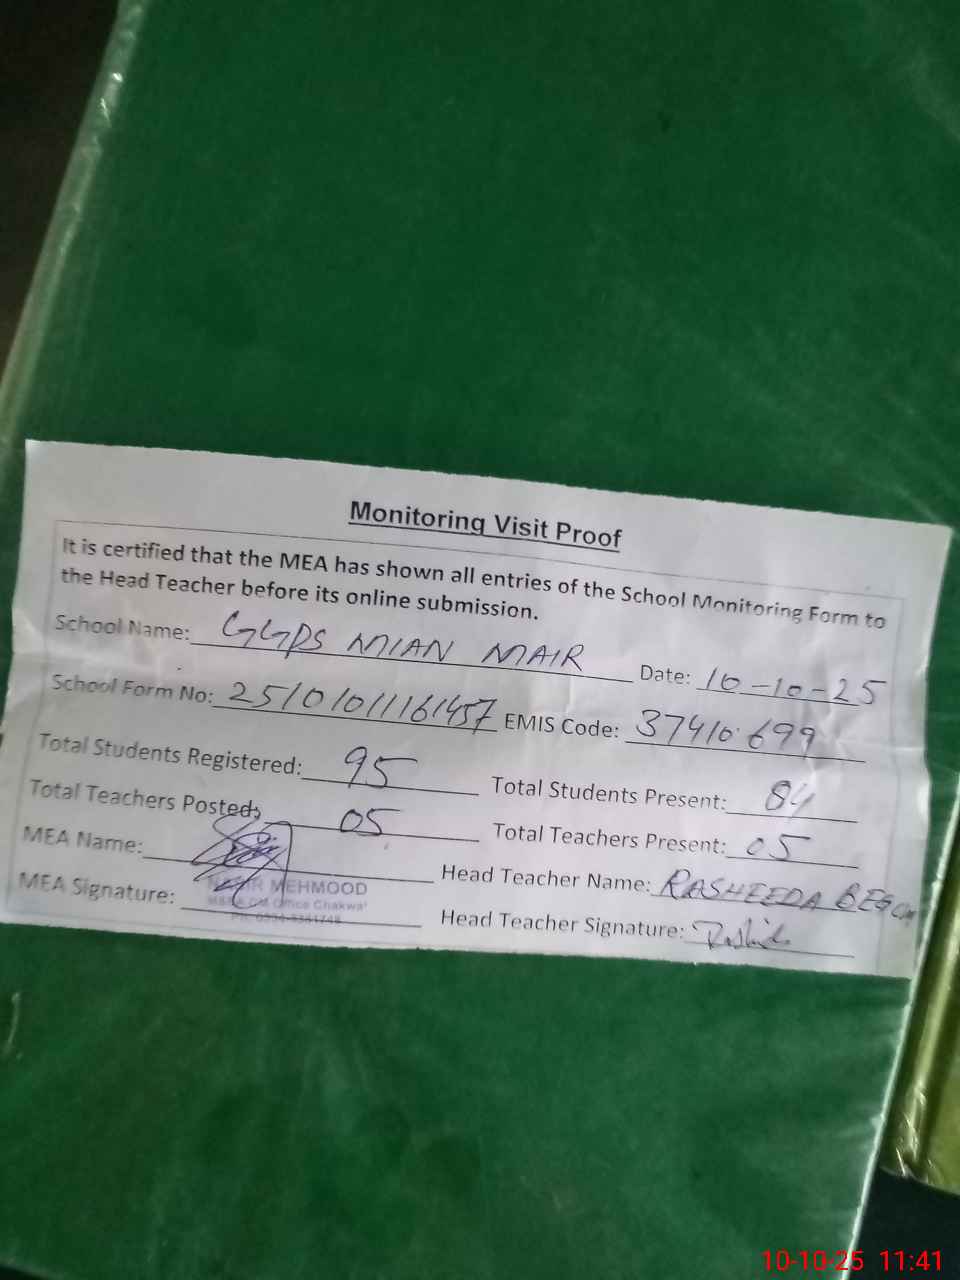 Monitoring Visit Proof
It is certified that the MEA has shown all entries of the School Monitoring Form to
the Head Teacher before its online submission.
School Name: GGPS MIAN MAIR Date: 10-10-25
School Form No: 25101011161457 EMIS Code: 37410699
Total Students Registered: 95 Total Students Present: 84
Total Teachers Posted: 05 Total Teachers Present: 05
MEA Name: Head Teacher Name: RASHEEDA BEGUM
MEHMOOD
MEA Signature: Office Chakwal
Head Teacher Signature:
10-10-25 11:41